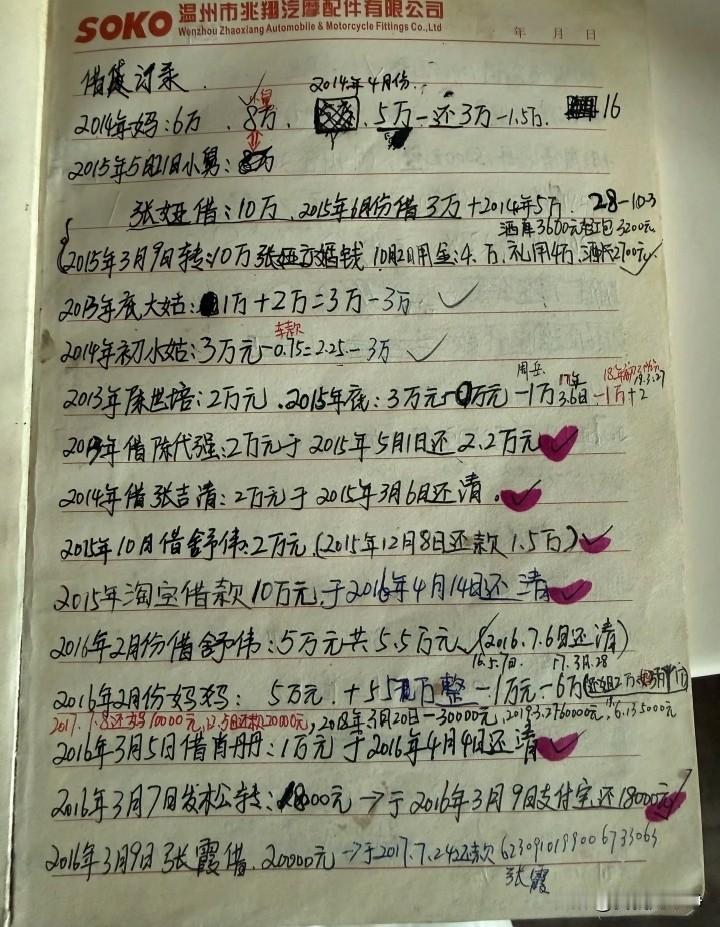 SOKO 温州市兆翔汽摩配件有限公司
Wenzhou Zhaoxiang Automobile & Motorcycle Fittings Co.,Ltd
年 月 日
借贷记录
2014年4月份
2014年妈:6万、8万、5万-还3万-1.5万. 16
2015年5月21日小舅:
张娅借:10万、2015年6月份借3万+2014年5万. 28-10-3
酒席3600元 3200元
2015年3月9日转:10万张娅 婚钱 10月2日用金:4.万.礼用4万.酒代2700元 ✓
2013年底大姑:1万+2万=3万-3万 ✓
车款
2014年初小姑:3万元-0.75=2.25-3万 ✓
周岳 17年 19.3.27
2013年陈世培:2万元、2015年底:3万元-万元-1万 3.6日-1万+2
2013年借陈代强:2万元于2015年5月1日还2.2万元 ✓
2014年借张吉清:2万元于2015年3月6日还清. ✓
2015年10月借舒伟:2万元.(2015年12月8日还款1.5万) ✓
2015年淘宝借款10万元.于2016年4月14日还清 ✓
2016年2月份借舒伟:5万元共5.5万元✓(2016.7.6日还清)
16.5.7日. 17.3月.28
2016年2月份妈妈: 5万元.+5 万整-1万元-6万
2017.7.8还妈10000元,12.5日还款20000元,2018年3月20日-30000元,2019.3.2760000元,6.135000元
2016年3月5日借肖丹丹:1万元于2016年4月4日还清 ✓
2016年3月7日发松转:18000元→于2016年3月9日支付宝还18000元 ✓
2016年3月9日张霞借.20000元→于2017.7.242还款 6230910199006733063
张霞